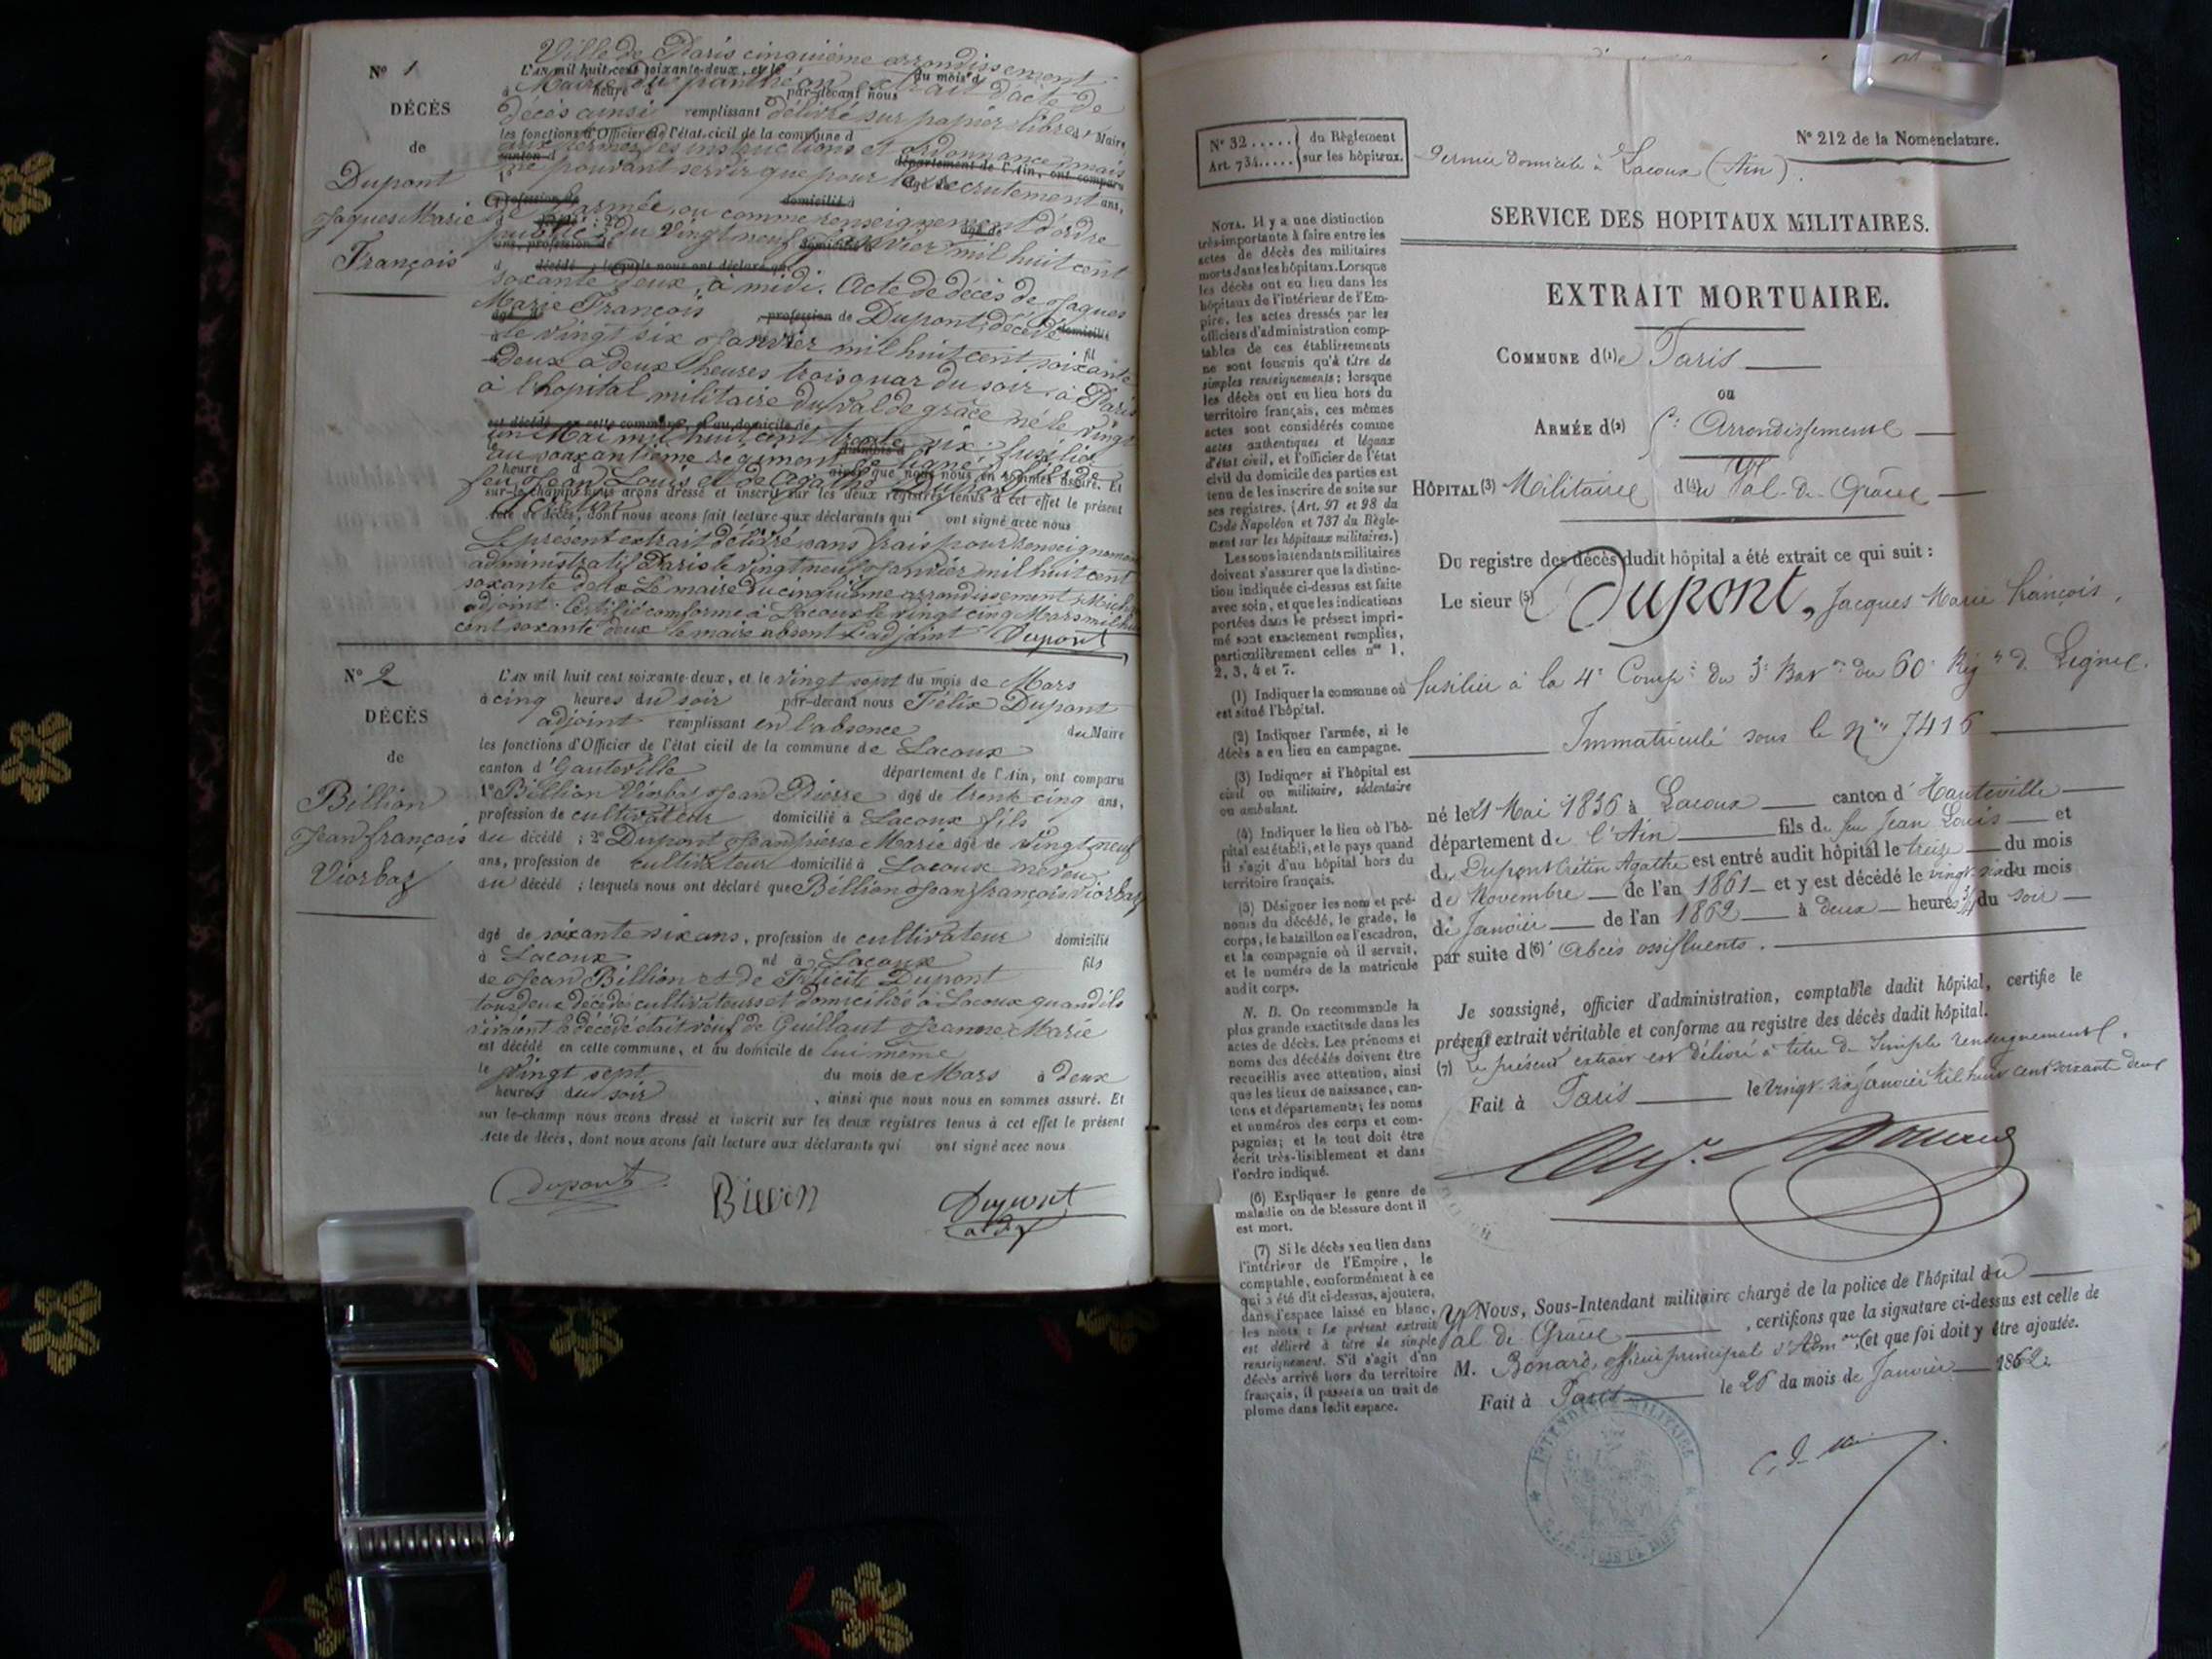 Nº 1
DÉCÈS
de
Dupont
Jaques Marie
François
Ville de Paris cinquième arrondissement
L'AN mil huit cent soixante-deux, et le du mois d
Mairie du panthéon extrait d'acte de
à heure d par-devant nous
décès ainsi remplissant délivré sur papier libre, Maire
les fonctions d'Officier de l'état civil de la commune d
aux termes des instructions et ordonnances mais
canton d département de l'Ain, ont comparu
ne pouvant servir que pour le recrutement
1º âgé de ans,
profession de domicilié à
de l'armée, ou comme renseignement d'ordre
public : du Vingt neuf Janvier mil huit cent
ans, profession de domicilié à
d décédé ; lesquels nous ont déclaré que
soxante deux, à midi. Acte de décès de Jaques
Marie François Dupont, décédé
âgé de profession de domicilié
le vingt six Janvier mil huit cent soixante
fil
deux a deux heures trois quar du soir à Paris
à l'hopital militaire du val de grâce né le vingt
est décédé en cette commune, et au domicile de
un Mai mil huit cent trente six : fusilier
au soixantième regiment de ligne : fils de
heure d ainsi que nous nous en sommes assuré. Et
feu Jean Louis et de Agathe Dupont
sur-le-champ nous avons dressé et inscrit sur les deux registres tenus à cet effet le présent
Cretin
Acte de décès, dont nous avons fait lecture aux déclarants qui ont signé avec nous
Le present extrait délivré sans frais pour renseignement
administratif Paris le vingt neuf Janvier mil huit cent
soxante deux Le maire du cinquième arrondissement
adjoint. Certifié comforme à Lacoux le vingt cinq Mars mil huit
cent soxante deux le maire absent L'adjoint Dupont
Nº 2
DÉCÈS
de
Billion
Jean françois
Viorbaz
L'AN mil huit cent soixante-deux, et le vingt sept du mois de Mars
à cinq heures du soir par-devant nous Félix Dupont
adjoint remplissant en l'absence du Maire
les fonctions d'Officier de l'état civil de la commune de Lacoux
canton d'Hauteville département de l'Ain, ont comparu
1º Billion Viorbaz Jean Pierre âgé de trente cinq ans,
profession de cultivateur domicilié à Lacoux fils
du décédé ; 2º Dupont Jean pierre Marie âgé de vingt neuf
ans, profession de cultivateur domicilié à Lacoux neveu
du décédé ; lesquels nous ont déclaré que Billion Jean françois Viorbaz
âgé de soixante six ans, profession de cultivateur domicilié
à Lacoux né à Lacoux fils
de Jean Billion et de Félicité Dupont
tous deux décédés cultivateurs et domiciliés à Lacoux quand ils
vivaient le décédé était veuf de Guillaut Jeanne Marie
est décédé en cette commune, et au domicile de lui même
le vingt sept du mois de Mars à deux
heures du soir , ainsi que nous nous en sommes assuré. Et
sur-le-champ nous avons dressé et inscrit sur les deux registres tenus à cet effet le présent
Acte de décès, dont nous avons fait lecture aux déclarants qui ont signé avec nous
dupont Billion Dupont
adj
Nº 32 ..... du Règlement
Art. 734..... sur les hôpitaux.
Dernier domicile à Lacoux (Ain).
Nº 212 de la Nomenclature.
SERVICE DES HOPITAUX MILITAIRES.
EXTRAIT MORTUAIRE.
COMMUNE d(1)e Paris
ou
ARMÉE d(2) 5e Arrondissement
HÔPITAL(3) Militaire d(4)u Val-de-Grâce
Du registre des décès dudit hôpital a été extrait ce qui suit :
Le sieur (5) Dupont, Jacques Marie François,
fusilier à la 4e Compie du 3e Baton du 60e Régt d. Ligne.
Immatriculé sous le no 7416
né le 21 Mai 1836 à Lacoux canton d'Hauteville
département de l'Ain fils de feu Jean Louis et
de Dupont Crétin Agathe est entré audit hôpital le treize du mois
de Novembre de l'an 1861 et y est décédé le vingt-six du mois
de Janvier de l'an 1862 à deux heures 3/4 du soir
par suite d(6)' Abcès ossifluents.
Je soussigné, officier d'administration, comptable dudit hôpital, certifie le
présent extrait véritable et conforme au registre des décès dudit hôpital.
(7) Le présent extrait est délivré à titre de simple renseignement.
Fait à Paris le vingt-six Janvier mil huit cent soixante deux
Nous, Sous-Intendant militaire chargé de la police de l'hôpital du
Val de Grâce , certifions que la signature ci-dessus est celle de
M. Bonard, officier principal d'Admon, et que foi doit y être ajoutée.
Fait à Paris le 26 du mois de Janvier 1862.
INTENDANCE MILITAIRE
NOTA. Il y a une distinction
très-importante à faire entre les
actes de décès des militaires
morts dans les hôpitaux. Lorsque
les décès ont eu lieu dans les
hôpitaux de l'intérieur de l'Em-
pire, les actes dressés par les
officiers d'administration comp-
tables de ces établissements
ne sont fournis qu'à titre de
simples renseignements ; lorsque
les décès ont eu lieu hors du
territoire français, ces mêmes
actes sont considérés comme
actes authentiques et légaux
d'état civil, et l'officier de l'état
civil du domicile des parties est
tenu de les inscrire de suite sur
ses registres. (Art. 97 et 98 du
Code Napoléon et 737 du Règle-
ment sur les hôpitaux militaires.)
Les sous-intendants militaires
doivent s'assurer que la distinc-
tion indiquée ci-dessus est faite
avec soin, et que les indications
portées dans le présent impri-
mé sont exactement remplies,
particulièrement celles nos 1,
2, 3, 4 et 7.
(1) Indiquer la commune où
est situé l'hôpital.
(2) Indiquer l'armée, si le
décès a eu lieu en campagne.
(3) Indiquer si l'hôpital est
civil ou militaire, sédentaire
ou ambulant.
(4) Indiquer le lieu où l'hô-
pital est établi, et le pays quand
il s'agit d'un hôpital hors du
territoire français.
(5) Désigner les nom et pré-
noms du décédé, le grade, le
corps, le bataillon ou l'escadron,
et la compagnie où il servait,
et le numéro de la matricule
audit corps.
N. B. On recommande la
plus grande exactitude dans les
actes de décès. Les prénoms et
noms des décédés doivent être
recueillis avec attention, ainsi
que les lieux de naissance, can-
tons et départements ; les noms
et numéros des corps et com-
pagnies ; et le tout doit être
écrit très-lisiblement et dans
l'ordre indiqué.
(6) Expliquer le genre de
maladie ou de blessure dont il
est mort.
(7) Si le décès a eu lieu dans
l'intérieur de l'Empire, le
comptable, conformément à ce
qui a été dit ci-dessus, ajoutera,
dans l'espace laissé en blanc,
les mots : Le présent extrait
est délivré à titre de simple
renseignement. S'il s'agit d'un
décès arrivé hors du territoire
français, il passera un trait de
plume dans ledit espace.